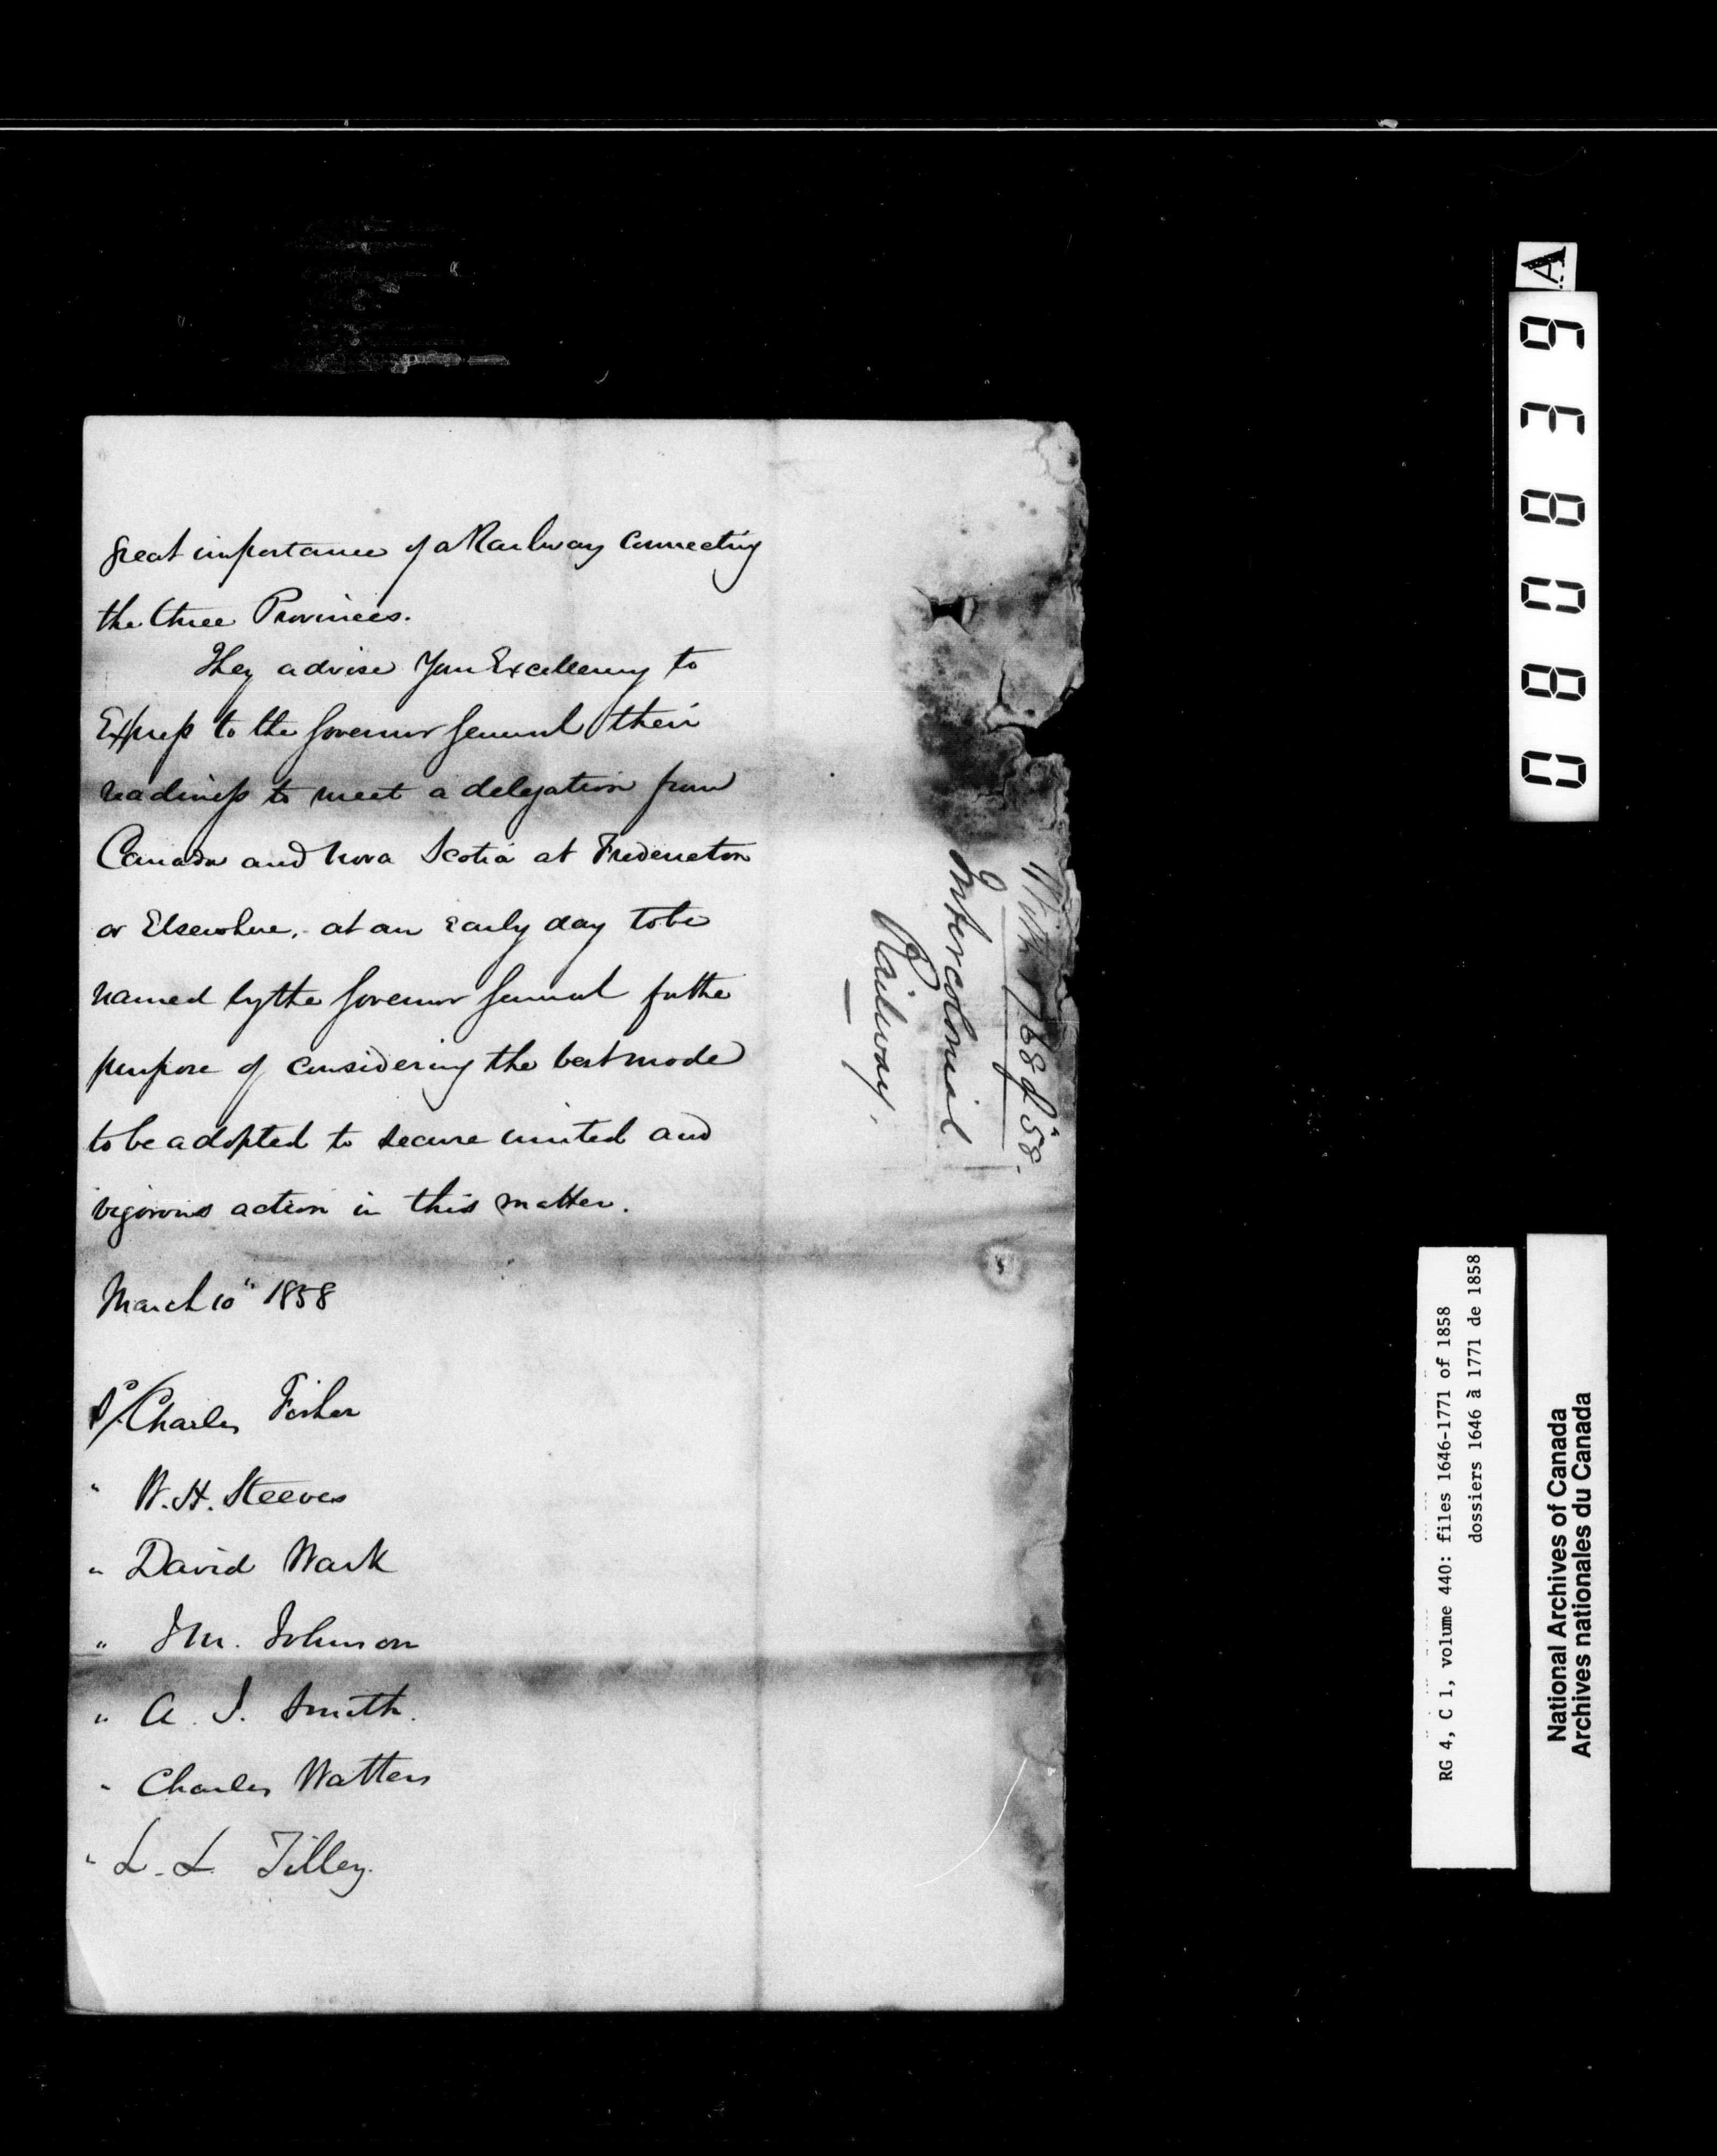 great importance of a Railway connecting
the three Provinces.
They advise Your Excellency to
Express to the Governor General their
readiness to meet a delegation from
Canada and Nova Scotia at Fredericton
or Elsewhere, at an early day to be
named by the Governor General for the
purpose of considering the best mode
to be adopted to secure united and
vigorous action in this matter.
March 10" 1858
Charles Fisher
" W. H. Steeves
" David Wark
" J M. Johnson
" A. J. Smith.
" Charles Watters
" L. L. Tilley.
With 1768 of '58.
Intercolonial
Railway.
A
080839
RG 4, C 1, volume 440: files 1646-1771 of 1858
dossiers 1646 à 1771 de 1858
National Archives of Canada
Archives nationales du Canada